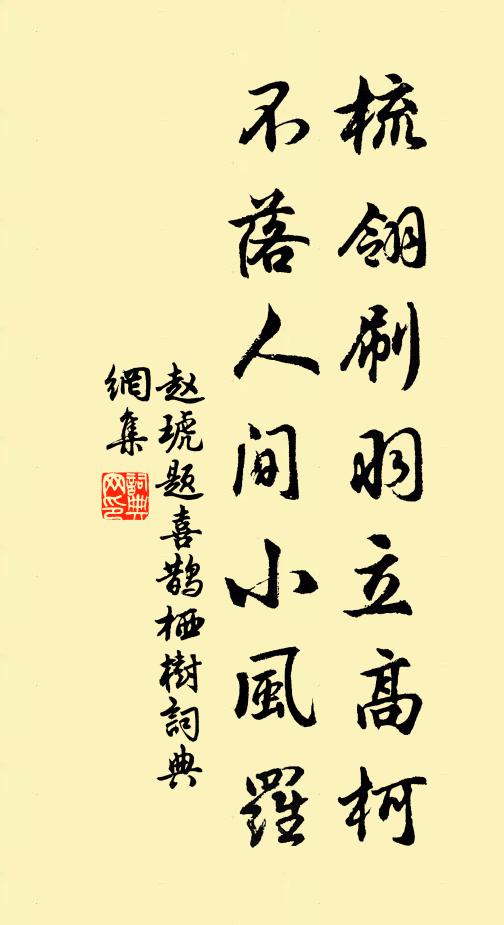 梳翎刷羽立高柯
不落人间小風羅
赵琥题喜鹊栖樹詞典
網集
詞典
网印